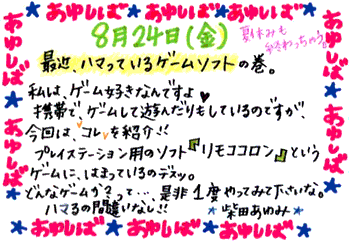 あゆしば★あゆしば★あゆしば★あゆしば
8月24日(金) 夏休みも
終わっちゃう。
最近、ハマっているゲームソフトの巻。
私は、ゲーム好きなんですよ♪
携帯で、ゲームして遊んだりもしているのですが、
今回は、コレを紹介!!
プレイステーション用のソフト『リモココロン』という
ゲームに、はまっているのデスッ。
どんなゲームか?って…是非1度やってみて下さいな。
ハマる事間違いなし!! ★柴田あゆみ★
あゆしば
あゆしば
あゆしば
あゆしば
あゆしば★あゆしば★あゆしば★あゆしば